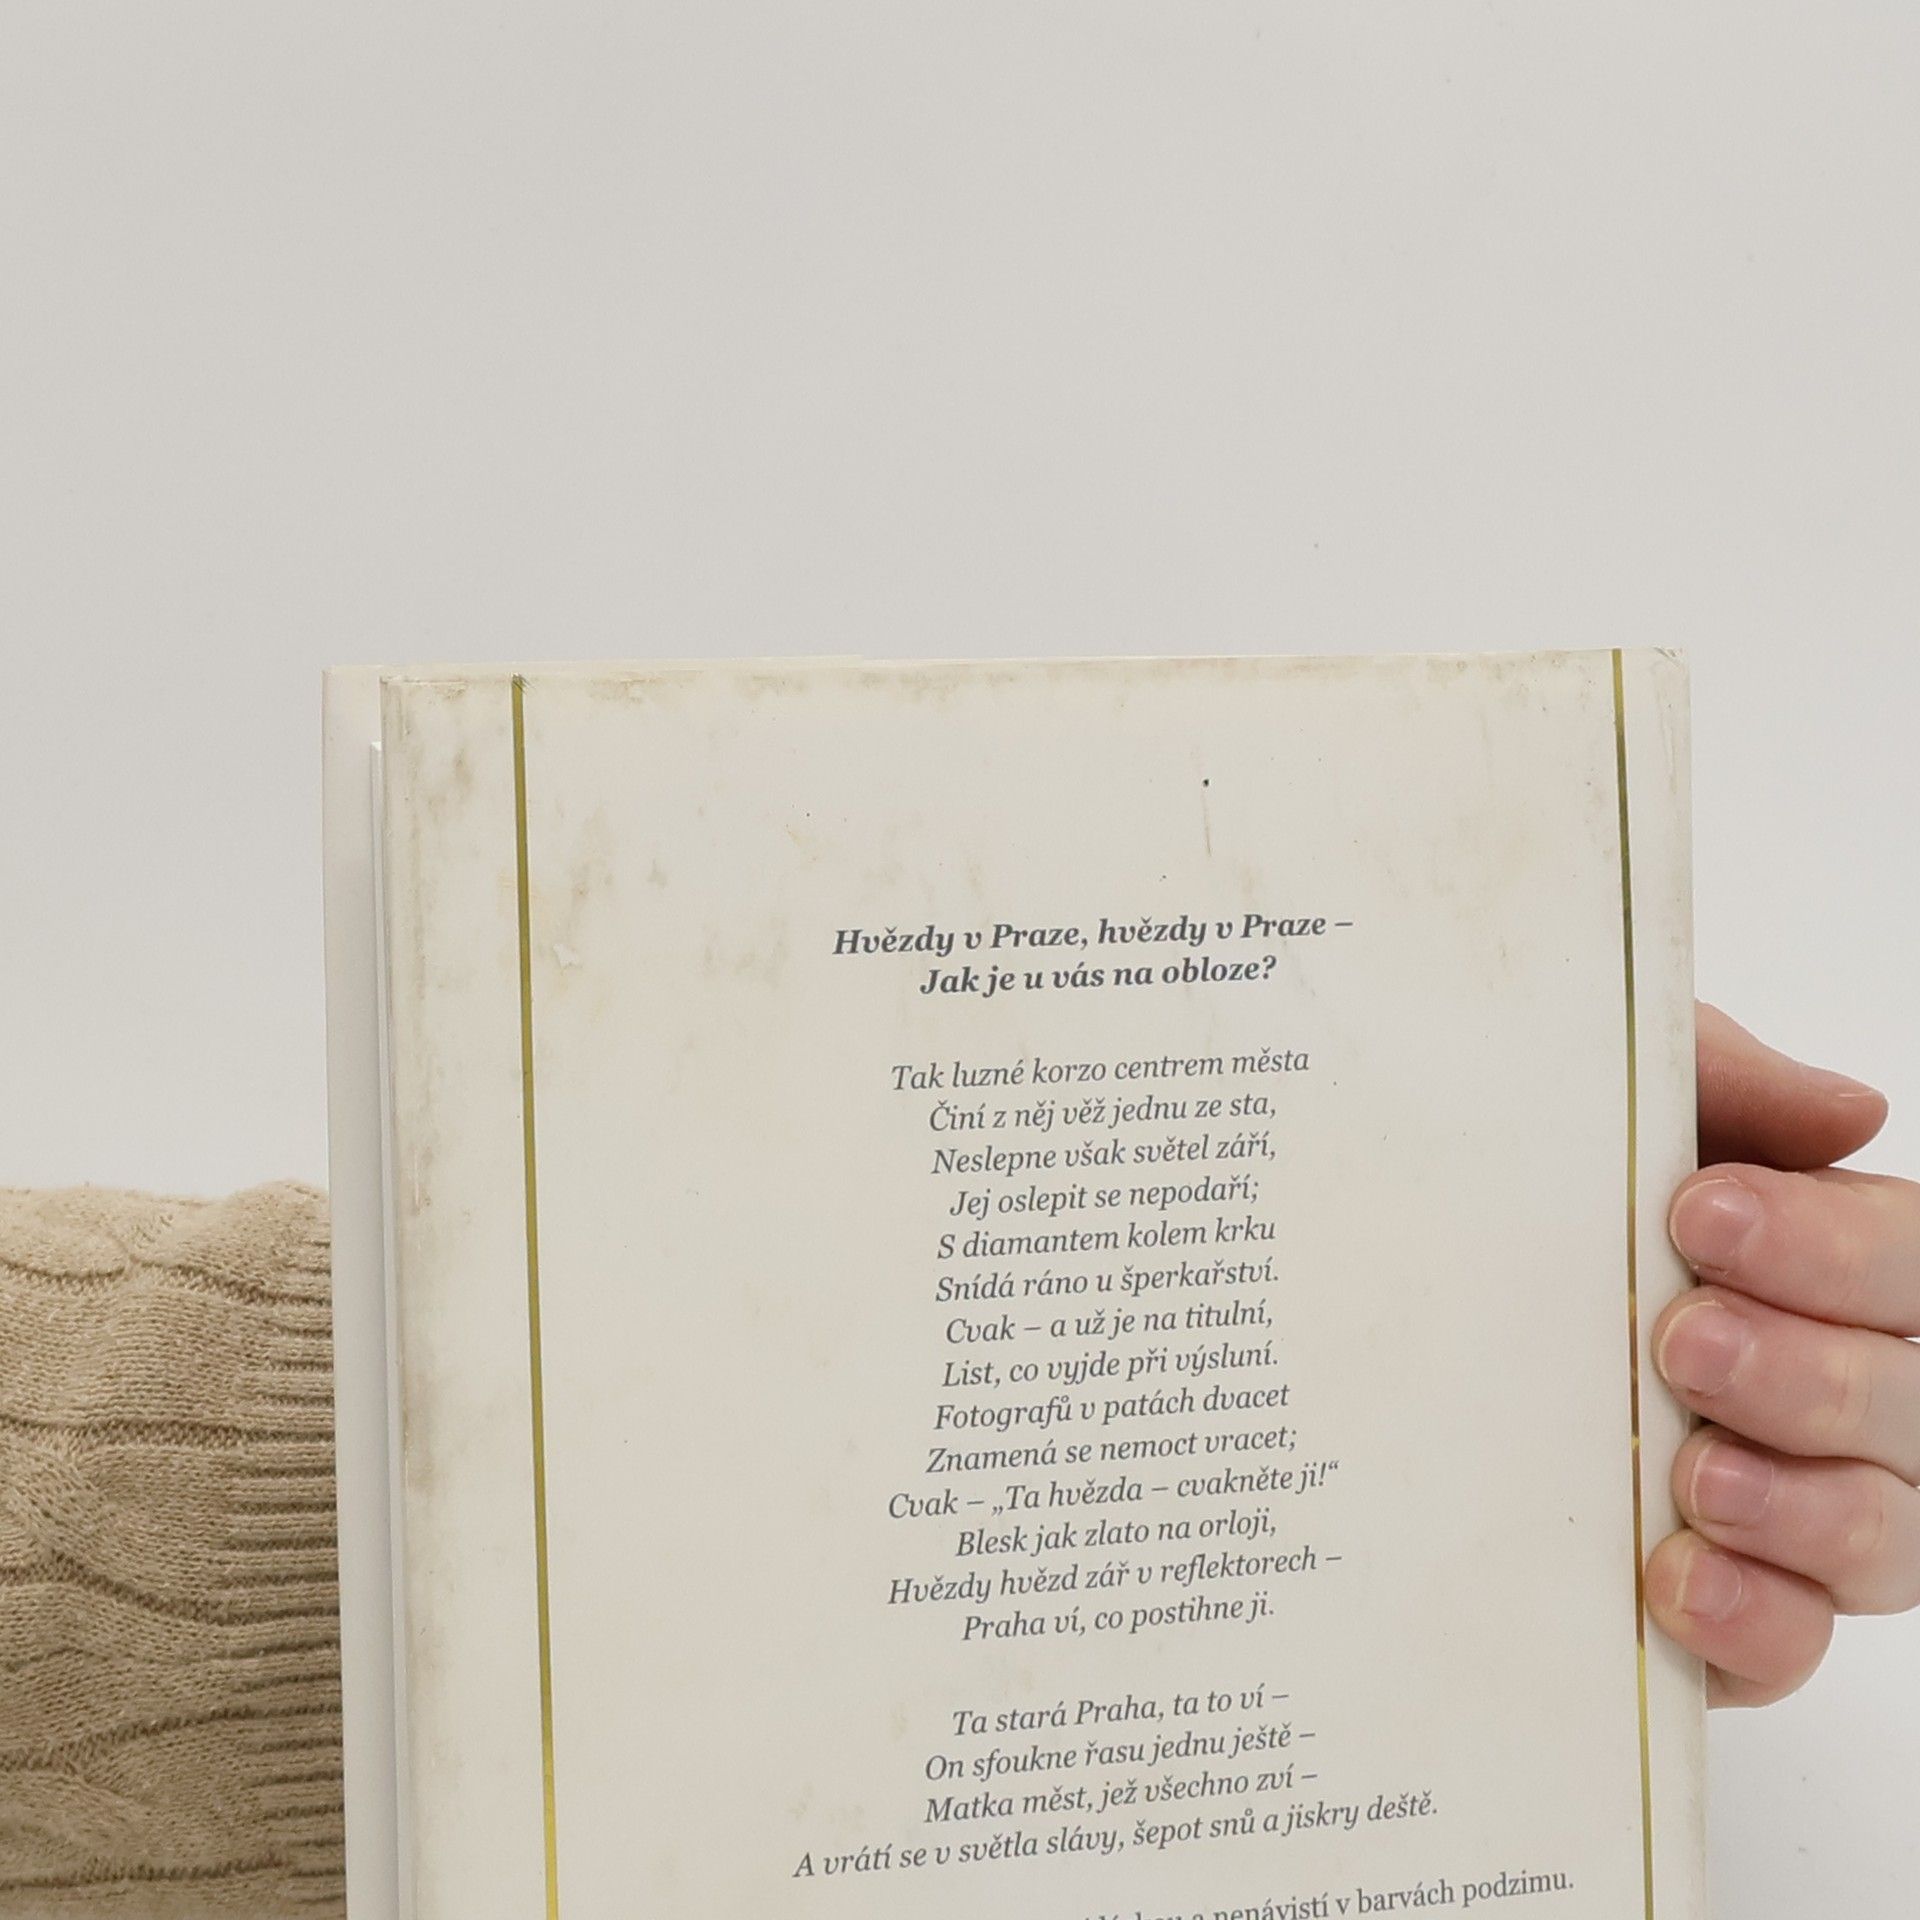 Hvězdy v Praze, hvězdy v Praze –
Jak je u vás na obloze?
Tak luzné korzo centrem města
Činí z něj věž jednu ze sta,
Neslepne však světel září,
Jej oslepit se nepodaří;
S diamantem kolem krku
Snídá ráno u šperkařství.
Cvak – a už je na titulní,
List, co vyjde při výsluní.
Fotografů v patách dvacet
Znamená se nemoct vracet;
Cvak – „Ta hvězda – cvakněte ji!“
Blesk jak zlato na orloji,
Hvězdy hvězd zář v reflektorech –
Praha ví, co postihne ji.
Ta stará Praha, ta to ví –
On sfoukne řasu jednu ještě –
Matka měst, jež všechno zví –
A vrátí se v světla slávy, šepot snů a jiskry deště.
a nenávistí v barvách podzimu.